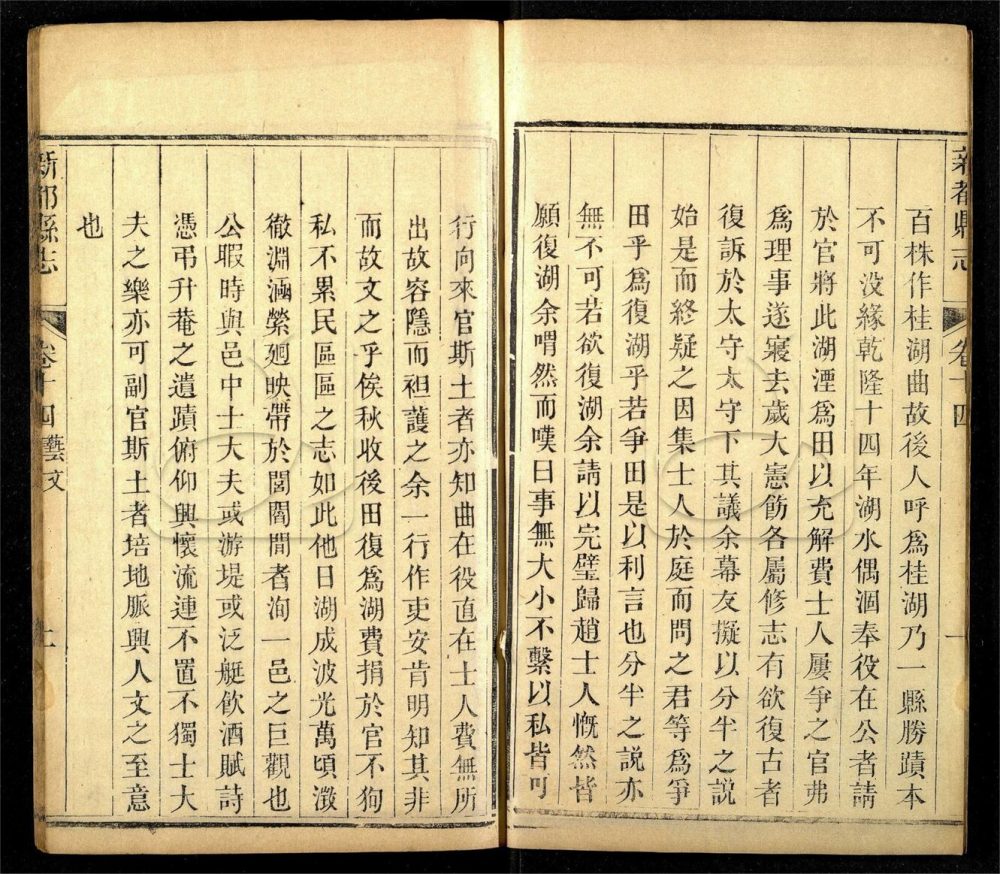 新都縣志 卷十四
百株作桂湖曲故後人呼爲桂湖乃一縣勝蹟本
不可没緣乾隆十四年湖水偶涸奉役在公者請
於官將此湖湮爲田以充解費士人屢爭之官弗
爲理事遂寢去歲大憲飭各屬修志有欲復古者
復訴於太守太守下其議余幕友擬以分半之說
始是而終疑之因集士人於庭而問之君等爲爭
田乎爲復湖乎若爭田是以利言也分半之說亦
無不可若欲復湖余請以完璧歸趙士人慨然皆
願復湖余喟然而嘆曰事無大小不繫以私皆可
行向來官斯土者亦知曲在役直在士人費無所
出故容隱而袒護之余一行作吏安肯明知其非
而故文之乎俟秋收後田復爲湖費捐於官不狥
私不累民區區之志如此他日湖成波光萬頃瀓
徹淵涵縈廻映帶於闤闠間者洵一邑之巨觀也
公暇時與邑中士大夫或游堤或泛艇飲酒賦詩
憑弔升菴之遺蹟俯仰興懷流連不置不獨士大
夫之樂亦可副官斯土者培地脈興人文之至意
也
新都縣志 卷十四 藝文